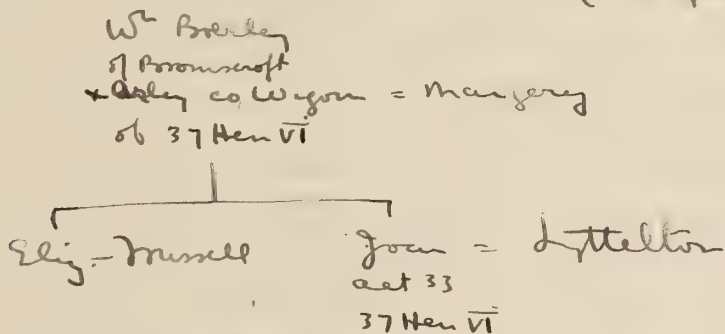 Wm Boerley
of Broomscroft
co Wigorn = Margerey
ob 37 Hen VI
Eliz = Trussell Joan = Lyttelton
aet 33
37 Hen VI